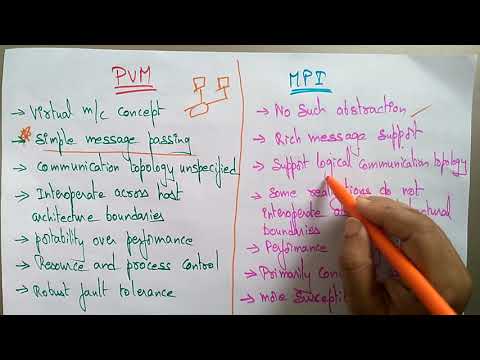 PVM
→ Virtual m/c concept
→ Simple message passing
→ communication topology unspecified
→ Interoperate across host
architecture boundaries
→ portability over performance
→ Resource and process control
→ Robust fault tolerance
MPI
→ No such abstraction
→ Rich message support
→ Support logical communication topology
→ Some do not
Interoperate
boundaries
→ Performance
→ Primarily
→ more